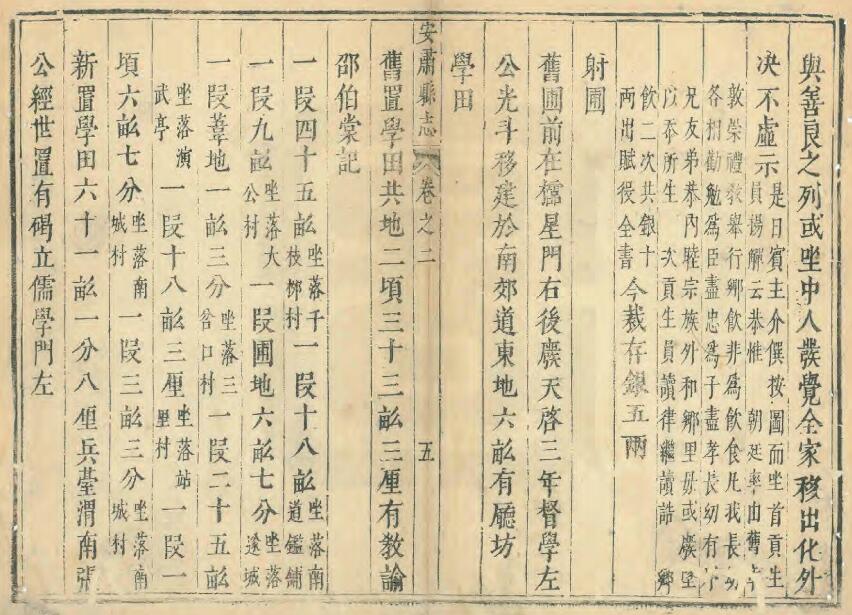 與善良之列或坐中人發覺全家移出化外
决不虛示是日賓主介僎按圖而坐首貢生
員揚觶云恭惟 朝廷率由舊章
敦崇禮教舉行鄉飲非爲飲食凡我長幼
各相勸勉爲臣盡忠爲子盡孝長幼有序
兄友弟恭內睦宗族外和鄉里毋或廢墜
以忝所生 次貢生員讀律繼讀誥 鄉
飲二次共銀十
兩出賦役全書 今裁存銀五兩
射圃
舊圃前在櫺星門右後廢天啓三年督學左
公光斗移建於南郊道東地六畝有廳坊
學田
安肅縣志 卷之二 五
舊置學田共地二頃三十三畝三厘有教諭
邵伯棠記
一段四十五畝坐落千枝栁村一段十八畝坐落南道鑑鋪
一段九畝坐落大公村一段圃地六畝七分坐落遂城
一段葦地一畝三分坐落三岔口村一段二十五畝
坐落演武亭一段十八畝三厘坐落站里村一段一
頃六畝七分坐落南城村一段三畝三分坐落南城村
新置學田六十一畝一分八厘兵臺渭南張
公經世置有碣立儒學門左